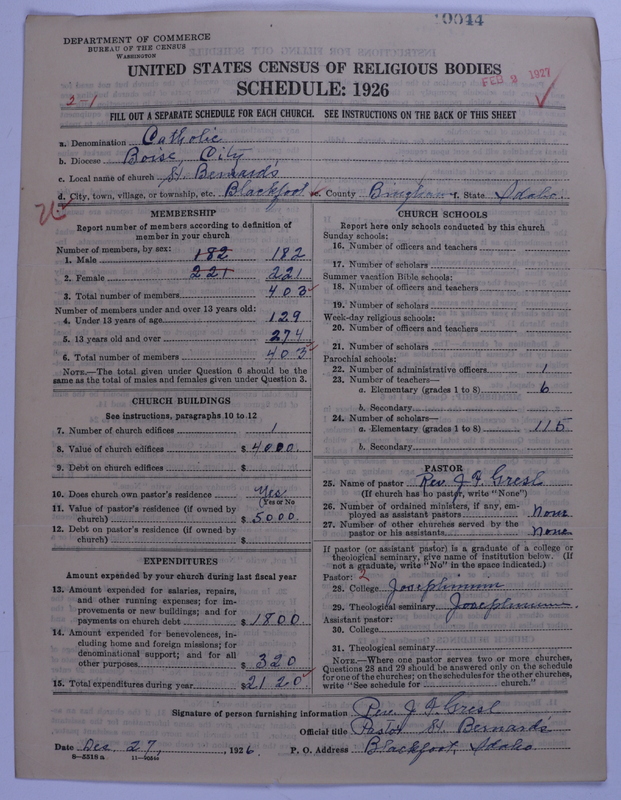 10044
DEPARTMENT OF COMMERCE
BUREAU OF THE CENSUS
WASHINGTON
UNITED STATES CENSUS OF RELIGIOUS BODIES
FEB 2 1927
SCHEDULE: 1926
2-1
FILL OUT A SEPARATE SCHEDULE FOR EACH CHURCH. SEE INSTRUCTIONS ON THE BACK OF THIS SHEET
a. Denomination Catholic
b. Diocese Boise, City
c. Local name of church St. Bernard's
d. City, town, village, or township, etc. Blackfoot e. County Bingham f. State Idaho
MEMBERSHIP
Report number of members according to definition of
member in your church
Number of members, by sex:
1. Male 182 182
2. Female 221 221
3. Total number of members 403
Number of members under and over 13 years old:
4. Under 13 years of age 129
5. 13 years old and over 274
6. Total number of members 403
NOTE.—The total given under Question 6 should be
same as the total of males and females given under Question 3.
CHURCH BUILDINGS
See instructions, paragraphs 10 to 12
7. Number of church edifices 1
8. Value of church edifices $ 4000
9. Debt on church edifices $
10. Does church own pastor's residence Yes
(Yes or No)
11. Value of pastor's residence (if owned by
church) $ 5000
12. Debt on pastor's residence (if owned by
church) $
EXPENDITURES
Amount expended by your church during last fiscal year
13. Amount expended for salaries, repairs,
and other running expenses; for im-
provements or new buildings; and for
payments on church debt $ 1800
14. Amount expended for benevolences, in-
cluding home and foreign missions; for
denominational support; and for all
other purposes $ 320
15. Total expenditures during year $ 2120
CHURCH SCHOOLS
Report here only schools conducted by this church
Sunday schools:
16. Number of officers and teachers
17. Number of scholars
Summer vacation Bible schools:
18. Number of officers and teachers
19. Number of scholars
Week-day religious schools:
20. Number of officers and teachers
21. Number of scholars
Parochial schools:
22. Number of administrative officers 1
23. Number of teachers—
a. Elementary (grades 1 to 8) 6
b. Secondary
24. Number of scholars—
a. Elementary (grades 1 to 8) 115
b. Secondary
PASTOR
25. Name of pastor Rev. J. F. Gresl
(If church has no pastor, write "None")
26. Number of ordained ministers, if any, em-
ployed as assistant pastors None
27. Number of other churches served by the
pastor or his assistants None
If pastor (or assistant pastor) is a graduate of a college or
theological seminary, give name of institution below. (If
not a graduate, write "No" in the space indicated.)
Pastor: 2
28. College Josephinum
29. Theological seminary Josephinum
Assistant pastor:
30. College
31. Theological seminary
NOTE.—Where one pastor serves two or more churches,
Questions 28 and 29 should be answered only on the schedule
for one of the churches; on the schedules for the other churches,
write "See schedule for church."
Signature of person furnishing information Rev. J. F. Gresl
Official title Pastor St. Bernard's
Date Dec. 27, 1926. P. O. Address Blackfoot, Idaho
8—5318 a